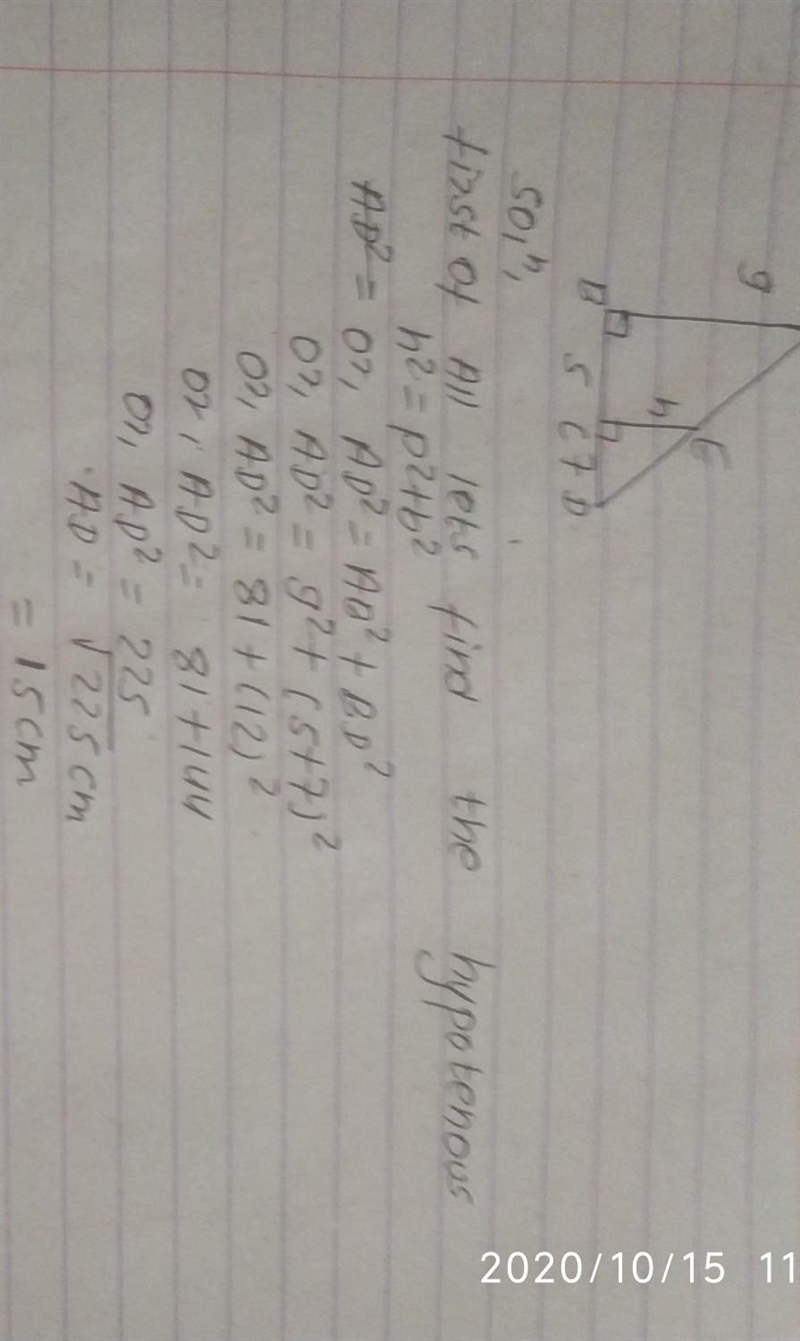 9
B 5 C 7 D
h
E
so,n,
first of All lets find the hypotenous
h² = p²+b²
AD² = or, AD² = AB² + BD²
or, AD² = 9² + (5+7)²
or, AD² = 81 + (12)²
or, AD² = 81+144
or, AD² = 225
AD = √225 cm
= 15cm
2020/10/15 11